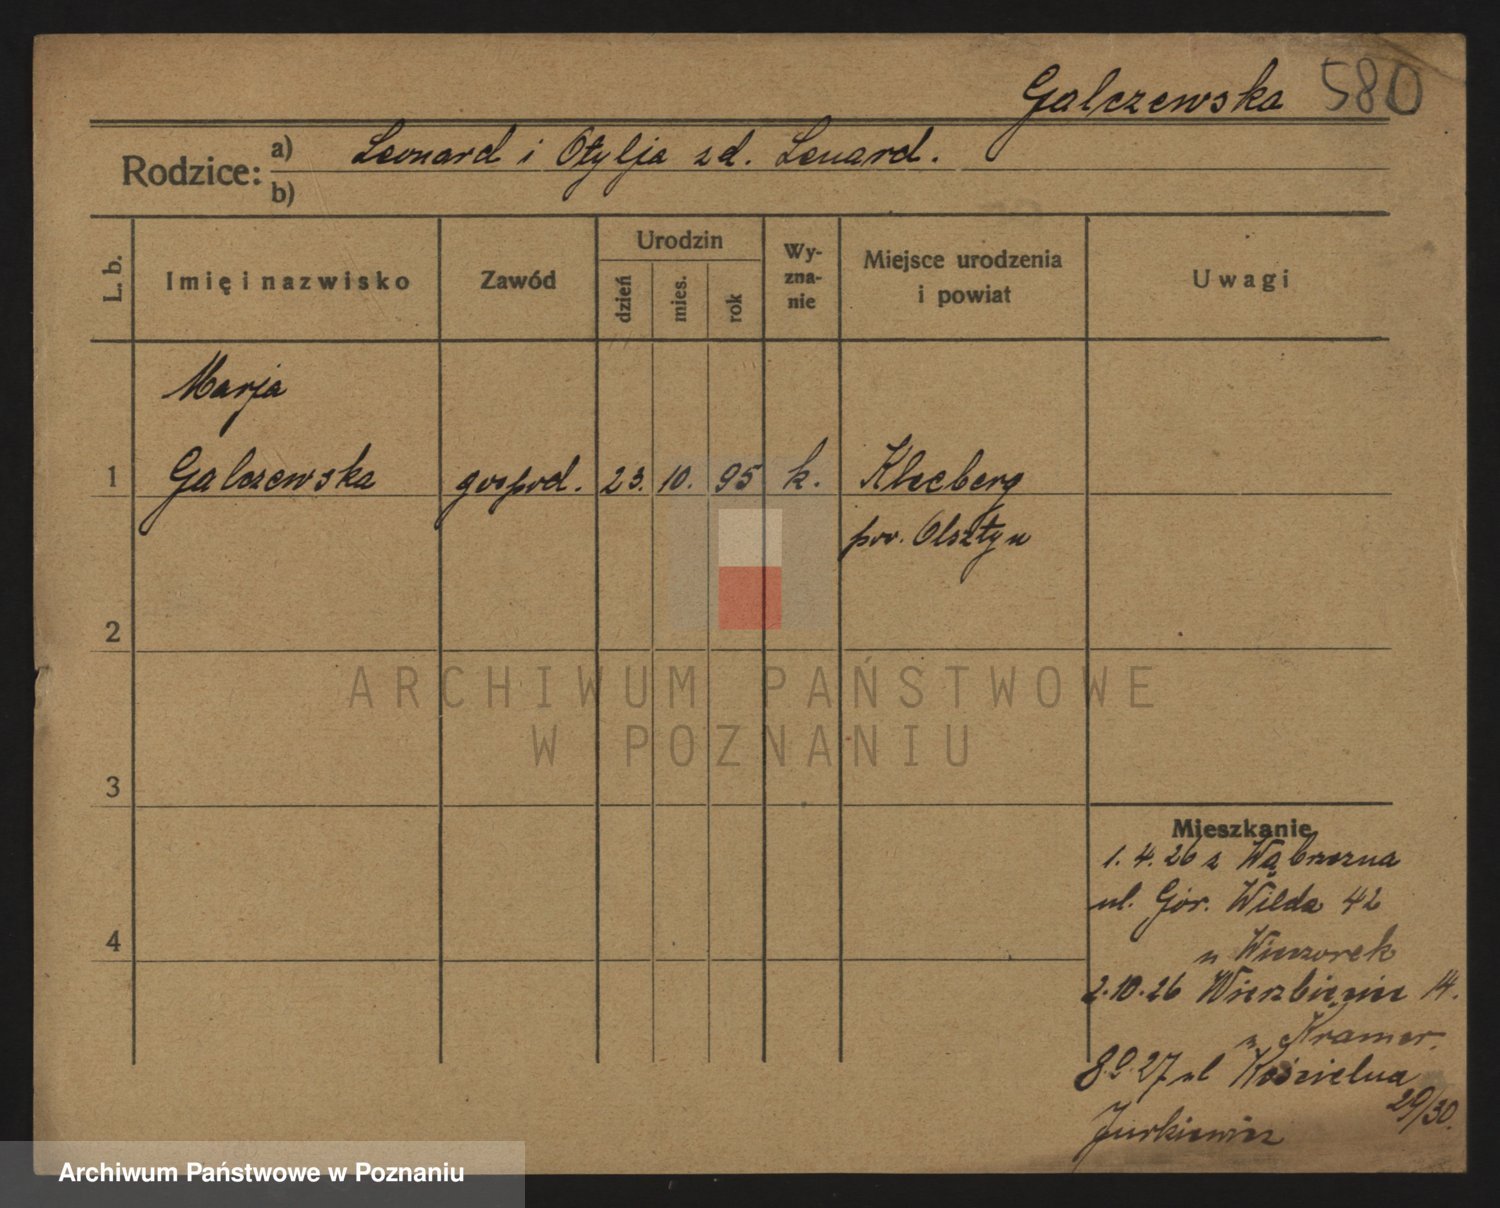 Galczewska 580
Rodzice: a) Leonard i Otylja zd. Lenard.
b)
L. b.
Imię i nazwisko
Zawód
Urodzin
dzień
mies.
rok
Wy-
zna-
nie
Miejsce urodzenia
i powiat
Uwagi
Marja
1 Galczewska gospod. 23. 10. 95 k. Kleeberg
pow. Olsztyn
2
ARCHIWUM PAŃSTWOWE
W POZNANIU
3
Mieszkanie
1. 4. 26 z Wąbrzezna
ul. Gór. Wilda 42
4
u Wieczorek
2.10.26 Wierzbięcice 14.
u Kramer.
8.9.27 ul Kościelna
29/30.
Jurkiewicz
Archiwum Państwowe w Poznaniu